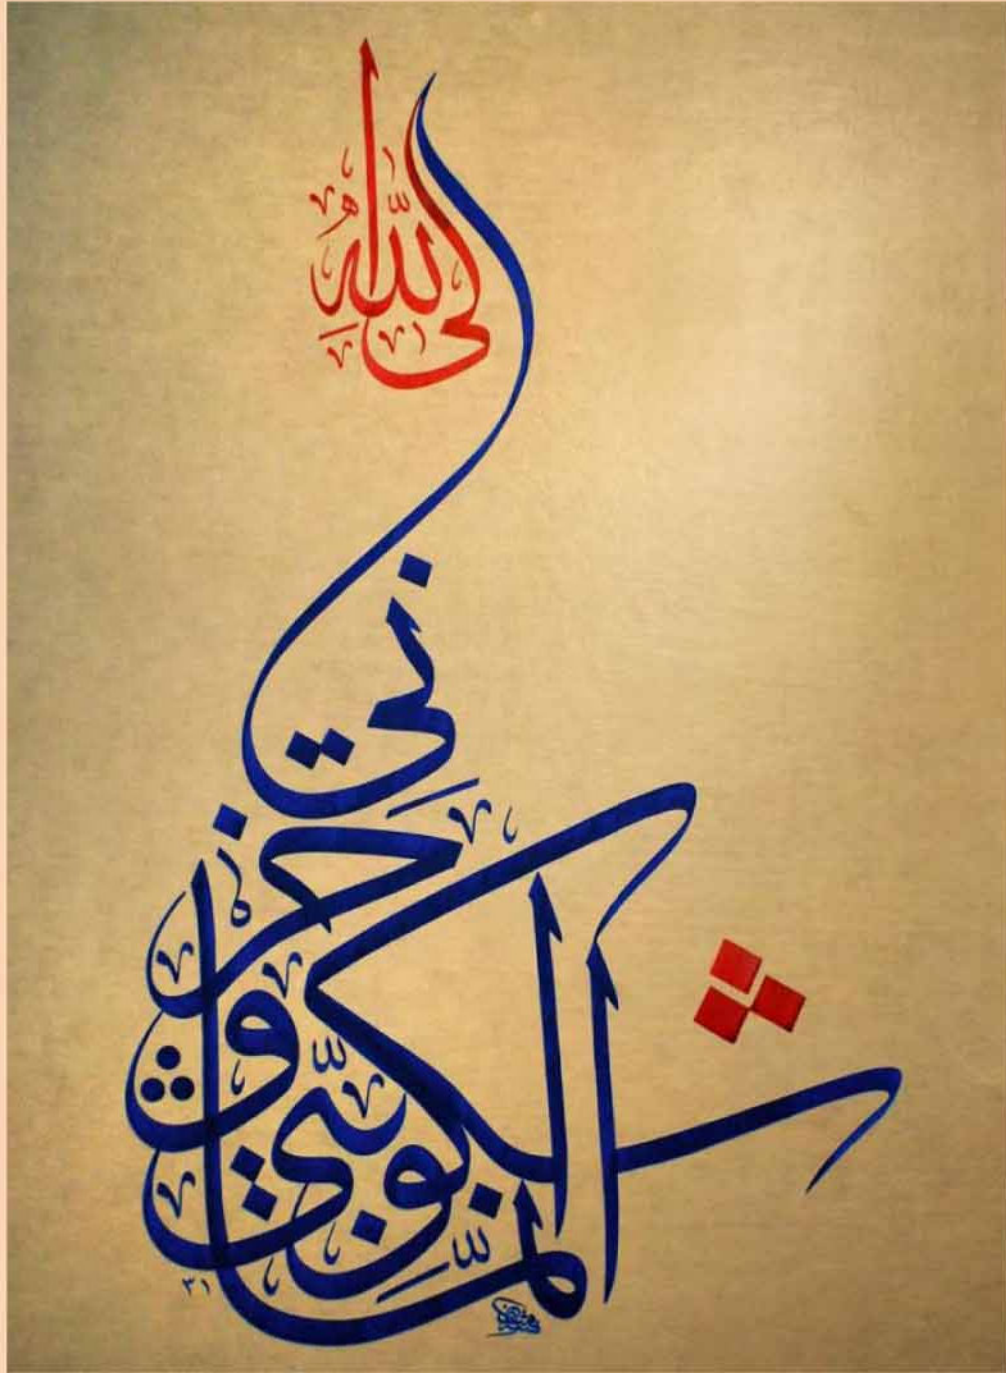 إنما أشكو بثي
وحزني
إلى الله
٣١